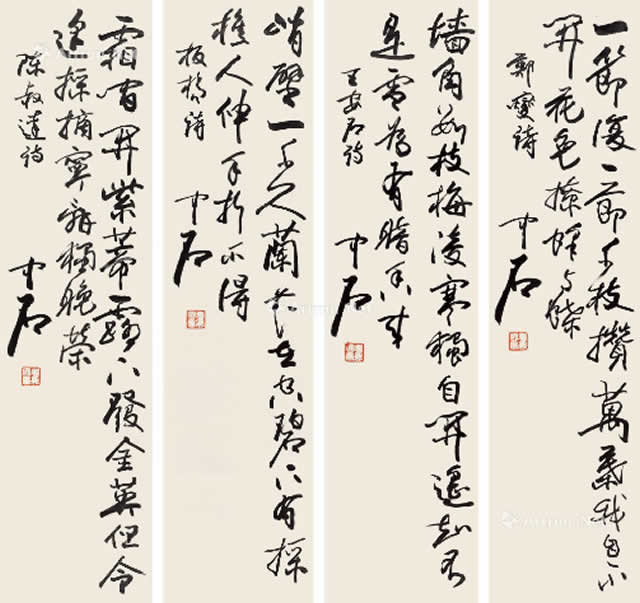 一節復一節千枝攢萬葉我自不
開花免撩蜂与蝶
鄭燮詩
中石
墙角數枝梅凌寒獨自開遥知不
是雪為有暗香来
王安石詩
中石
峭壁一千尺蘭花在空碧下有採
樵人伸手折不得
板橋詩
中石
霜間開紫蒂露下發金英但令
逢採摘寧辭獨晚榮
陈叔達詩
中石